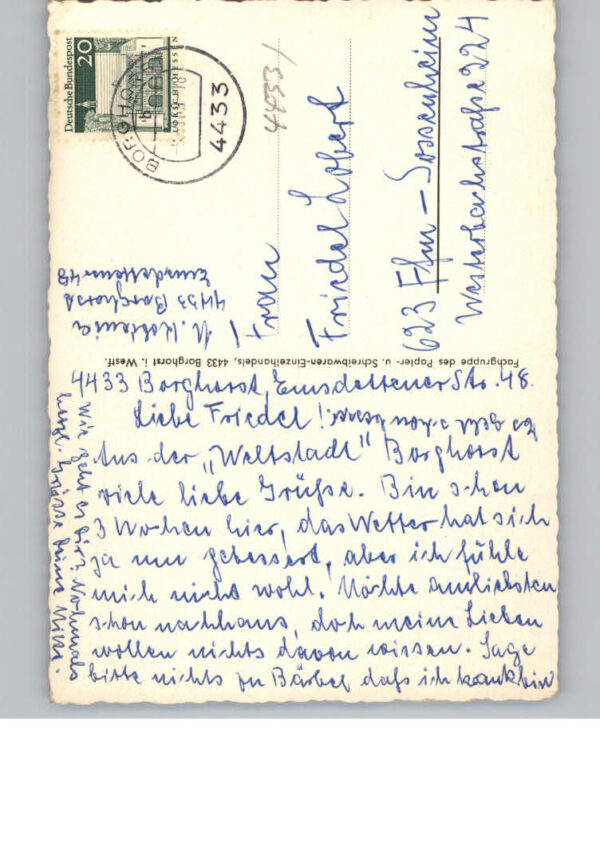 Deutsche Bundespost
20
LORSCH/HESSEN
BORGHORST
b
4433
4433/
Frau
Friedel Lobert
623 Ffm-Sossenheim
Westerbachstraße 224
4433 Borghorst
Emsdettener 48
Fachgruppe des Papier- u. Schreibwaren-Einzelhandels, 4433 Borghorst i. Westf.
4433 Borghorst, Emsdettener Str. 48.
Liebe Friedel!
Aus der „Weltstadt" Borghorst
viele liebe Grüße. Bin schon
3 Wochen hier, das Wetter hat sich
ja nun gebessert, aber ich fühle
mich nicht wohl. Möchte am liebsten
schon nachhaus, doch meine Lieben
wollen nichts davon wissen. Sage
bitte nichts zu Bärbel daß ich krank bin
Wie geht es Dir? Nochmals
herzl. Grüße Deine